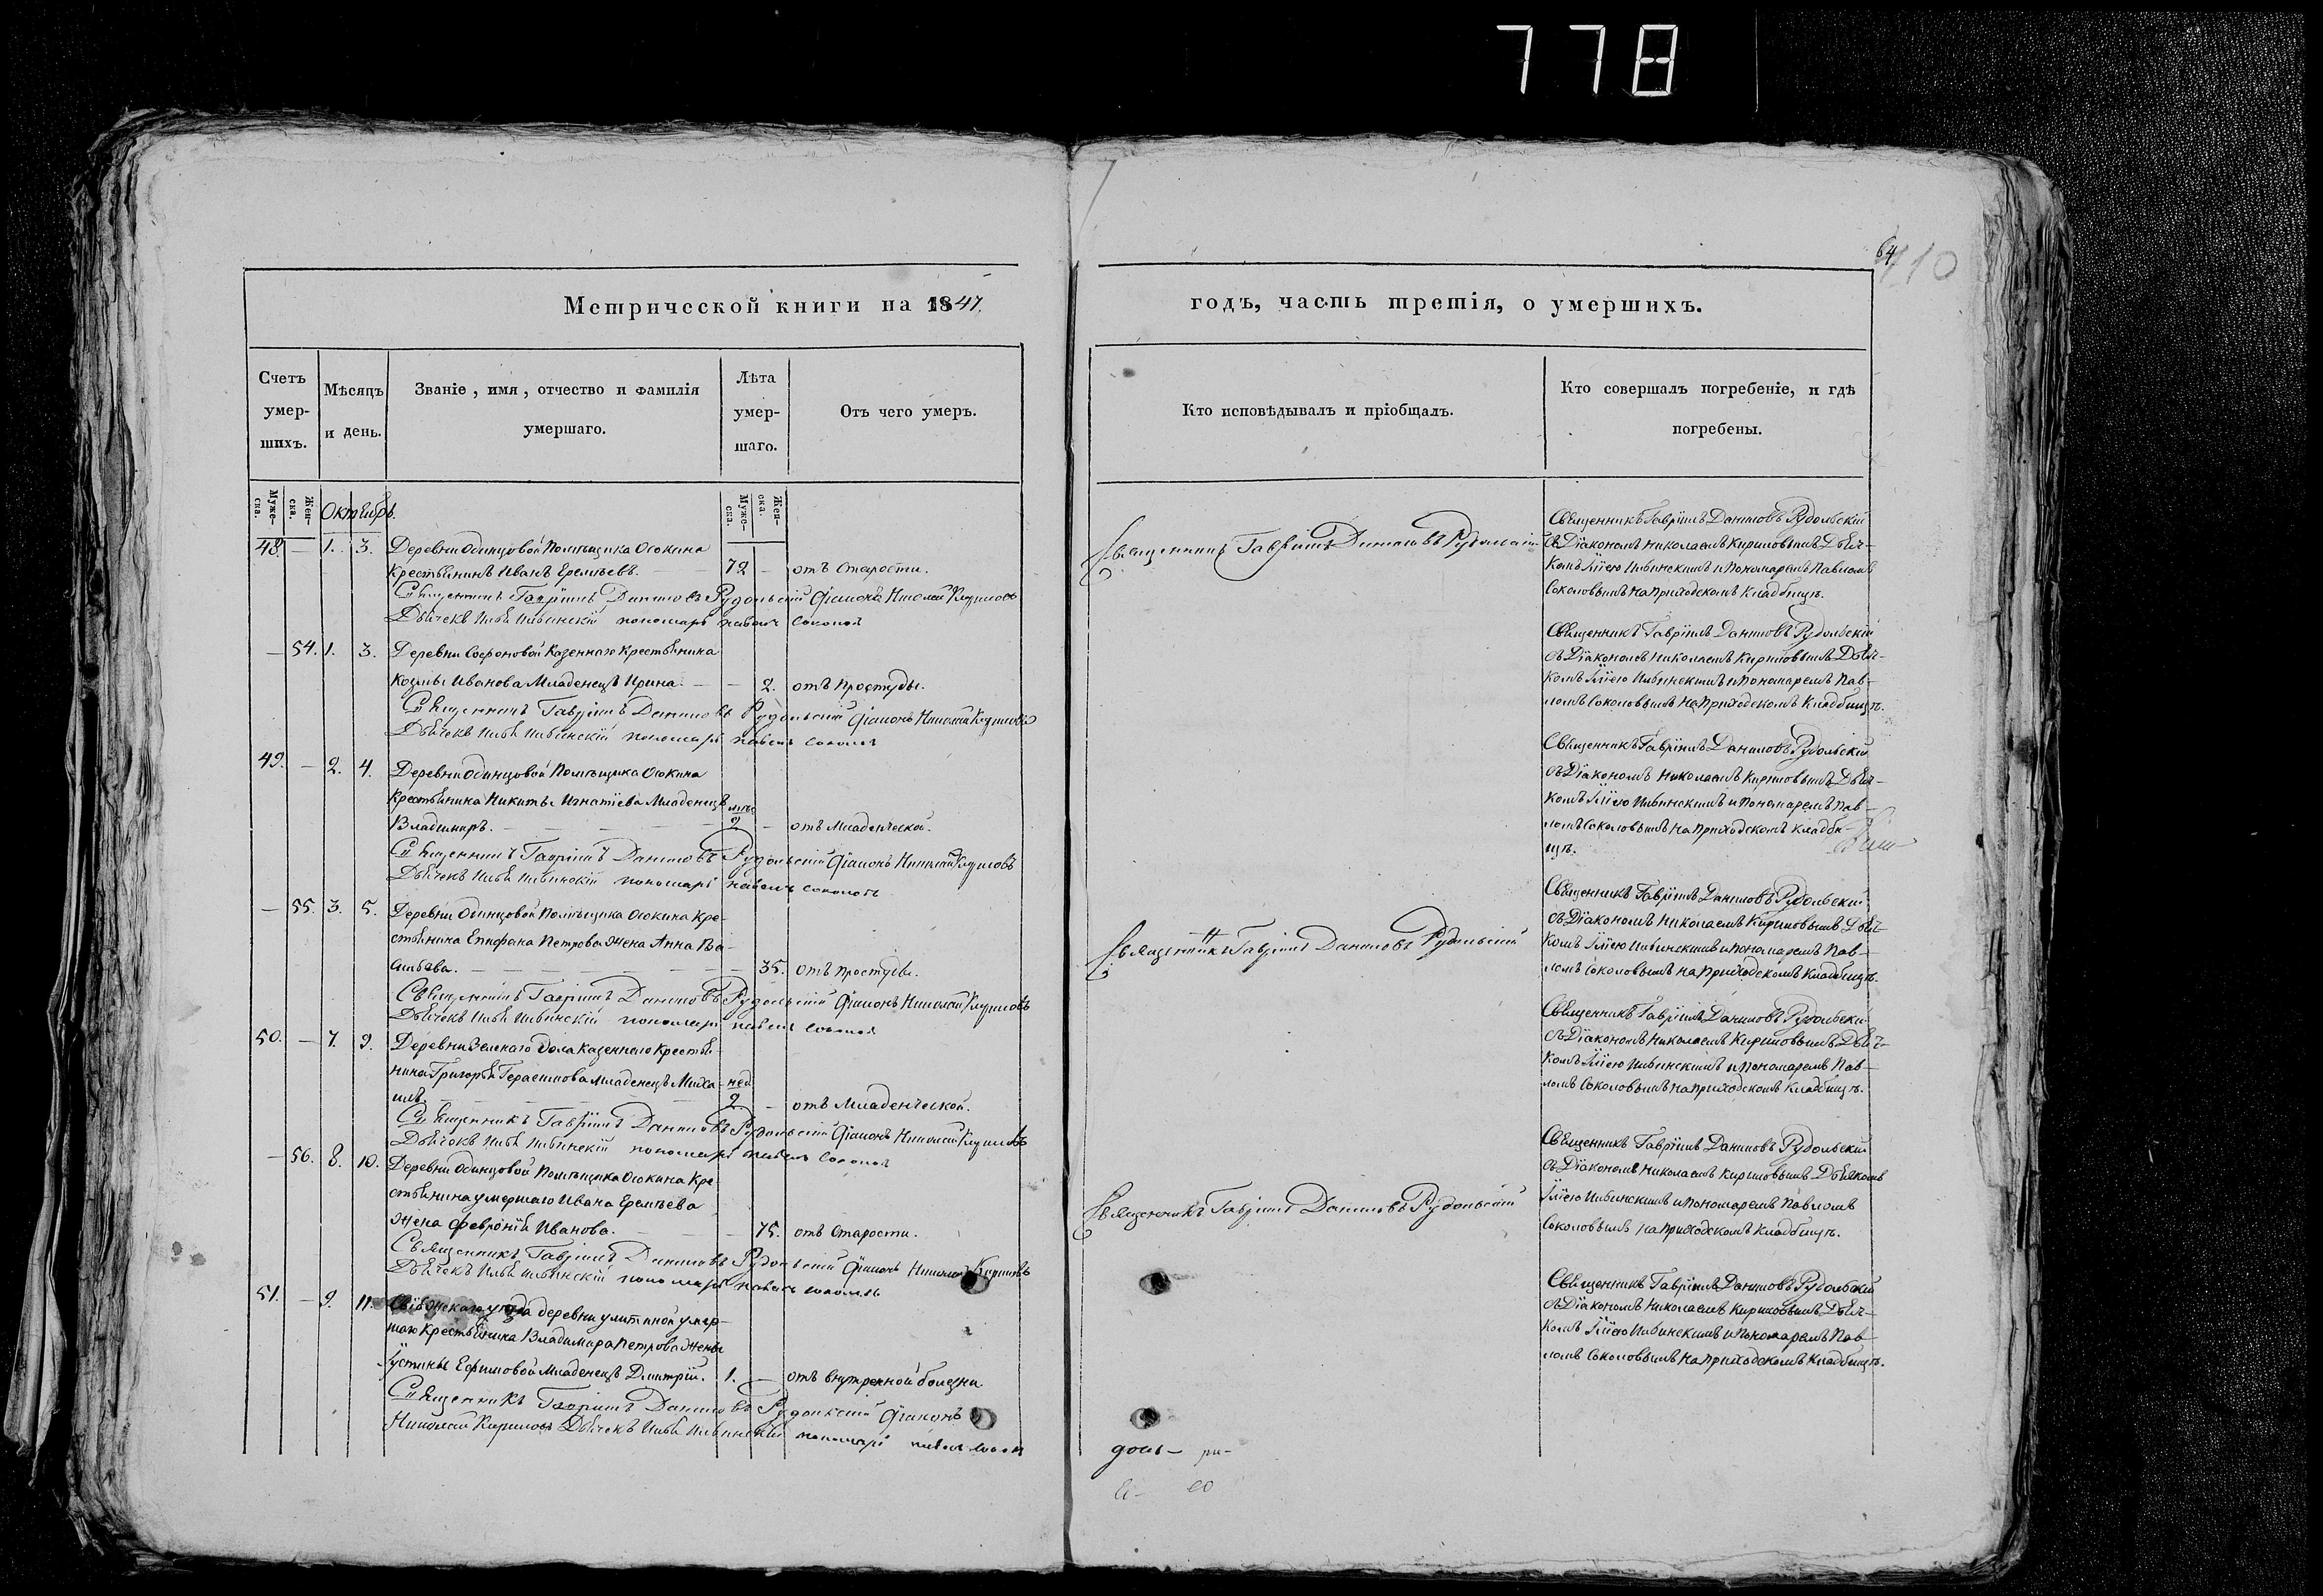 778
64
410
Метрической книги на 1847.
годъ, часть третія, о умершихъ.
Счетъ умер-шихъ.
Мѣсяцъ и день.
Званіе, имя, отчество и фамилія умершаго.
Лѣта умер-шаго.
Отъ чего умеръ.
Кто исповѣдывалъ и пріобщалъ.
Кто совершалъ погребеніе, и гдѣ погребены.
Муже-ска.
Жен-ска.
Октябрь.
Муже-ска.
Жен-ска.
48. — 1. 3. Деревни Одинцовой Помѣщика Осокина
Крестьянинъ Иванъ Еремѣевъ. — 72 — отъ Старости.
Священникъ Гавріилъ Даниловъ Рудольскій Діаконъ Николай Кириловъ
Дьячекъ Илья Ильинскій пономарь Павелъ Соколовъ
Священникъ Гавріилъ Даниловъ Рудольскій
Священникъ Гавріилъ Даниловъ Рудольскій
съ Діакономъ Николаемъ Кириловымъ Дьяч-
комъ Іліею Ильинскимъ и Пономаремъ Павломъ
Соколовымъ на Приходскомъ Кладбищѣ.
— 54. 1. 3. Деревни Софроновой Казеннаго Крестьянина
Козмы Иванова Младенецъ Ирина. — — 2. отъ Простуды.
Священникъ Гавріилъ Даниловъ Рудольскій Діаконъ Николай Кириловъ
Дьячекъ Илья Ильинскій пономарь Павелъ Соколовъ
Священникъ Гавріилъ Даниловъ Рудольскій
съ Діакономъ Николаемъ Кириловымъ Дьяч-
комъ Іліею Ильинскимъ и Пономаремъ Пав-
ломъ Соколовымъ на Приходскомъ Кладбищѣ.
49. — 2. 4. Деревни Одинцовой Помѣщика Осокина
Крестьянина Никиты Игнатіева Младенецъ
Владимиръ. — 2 — отъ Младенческой.
Священникъ Гавріилъ Даниловъ Рудольскій Діаконъ Николай Кириловъ
Дьячекъ Илья Ильинскій пономарь Павелъ Соколовъ
Священникъ Гавріилъ Даниловъ Рудольскій
съ Діакономъ Николаемъ Кириловымъ Дьяч-
комъ Іліею Ильинскимъ и Пономаремъ Пав-
ломъ Соколовымъ на Приходскомъ Кладби-
щѣ.
— 55. 3. 5. Деревни Одинцовой Помѣщика Осокина Кре-
стьянина Епифана Петрова Жена Анна Ва-
сильева. — — 35. отъ Простуды.
Священникъ Гавріилъ Даниловъ Рудольскій Діаконъ Николай Кириловъ
Дьячекъ Илья Ильинскій пономарь Павелъ Соколовъ
Священникъ Гавріилъ Даниловъ Рудольскій
Священникъ Гавріилъ Даниловъ Рудольскій
съ Діакономъ Николаемъ Кириловымъ Дьяч-
комъ Іліею Ильинскимъ и Пономаремъ Пав-
ломъ Соколовымъ на Приходскомъ Кладбищѣ.
50. — 7. 9. Деревни Зеленаго Дола Казеннаго Крестья-
нина Григорья Герасимова младенецъ Миха- нед.
илъ. — 2 — отъ Младенческой.
Священникъ Гавріилъ Даниловъ Рудольскій Діаконъ Николай Кириловъ
Дьячекъ Илья Ильинскій пономарь Павелъ Соколовъ
Священникъ Гавріилъ Даниловъ Рудольскій
съ Діакономъ Николаемъ Кириловымъ Дьяч-
комъ Іліею Ильинскимъ и Пономаремъ Пав-
ломъ Соколовымъ на Приходскомъ Кладбищѣ.
— 56. 8. 10. Деревни Одинцовой Помѣщика Осокина Кре-
стьянина умершаго Ивана Еремѣева
Жена Февронія Иванова. — 75. отъ Старости.
Священникъ Гавріилъ Даниловъ Рудольскій Діаконъ Николай Кириловъ
Дьячекъ Илья Ильинскій пономарь Павелъ Соколовъ
Священникъ Гавріилъ Даниловъ Рудольскій
Священникъ Гавріилъ Даниловъ Рудольскій
съ Діакономъ Николаемъ Кириловымъ Дьячкомъ
Іліею Ильинскимъ и Пономаремъ Павломъ
Соколовымъ на Приходскомъ Кладбищѣ.
51. — 9. 11. Свіяжскаго уѣзда деревни Улитиной умер-
шаго Крестьянина Владимира Петрова Жены
Іустины Ефимовой Младенецъ Димитрій. 1. — отъ внутренной болезни
Священникъ Гавріилъ Даниловъ Рудольскій Діаконъ
Николай Кириловъ Дьячекъ Илья Ильинскій пономарь Павелъ Соколовъ
Священникъ Гавріилъ Даниловъ Рудольскій
съ Діакономъ Николаемъ Кириловымъ Дьяч-
комъ Іліею Ильинскимъ и Пономаремъ Пав-
ломъ Соколовымъ на Приходскомъ Кладбищѣ.